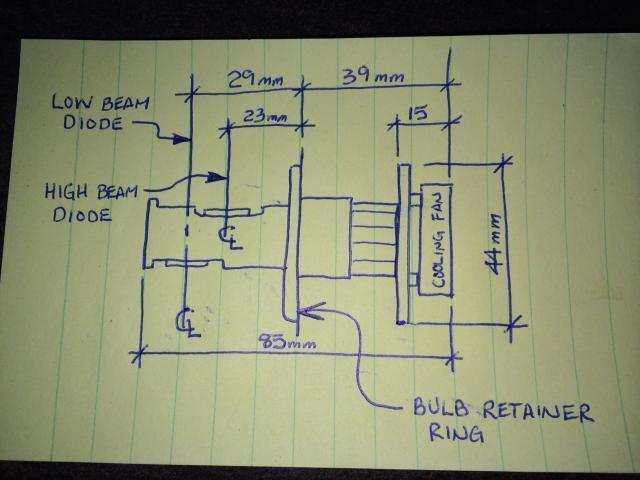 29mm
39mm
LOW BEAM
DIODE
23mm
15
HIGH BEAM
DIODE
CL
COOLING FAN
44mm
CL
85mm
BULB RETAINER
RING